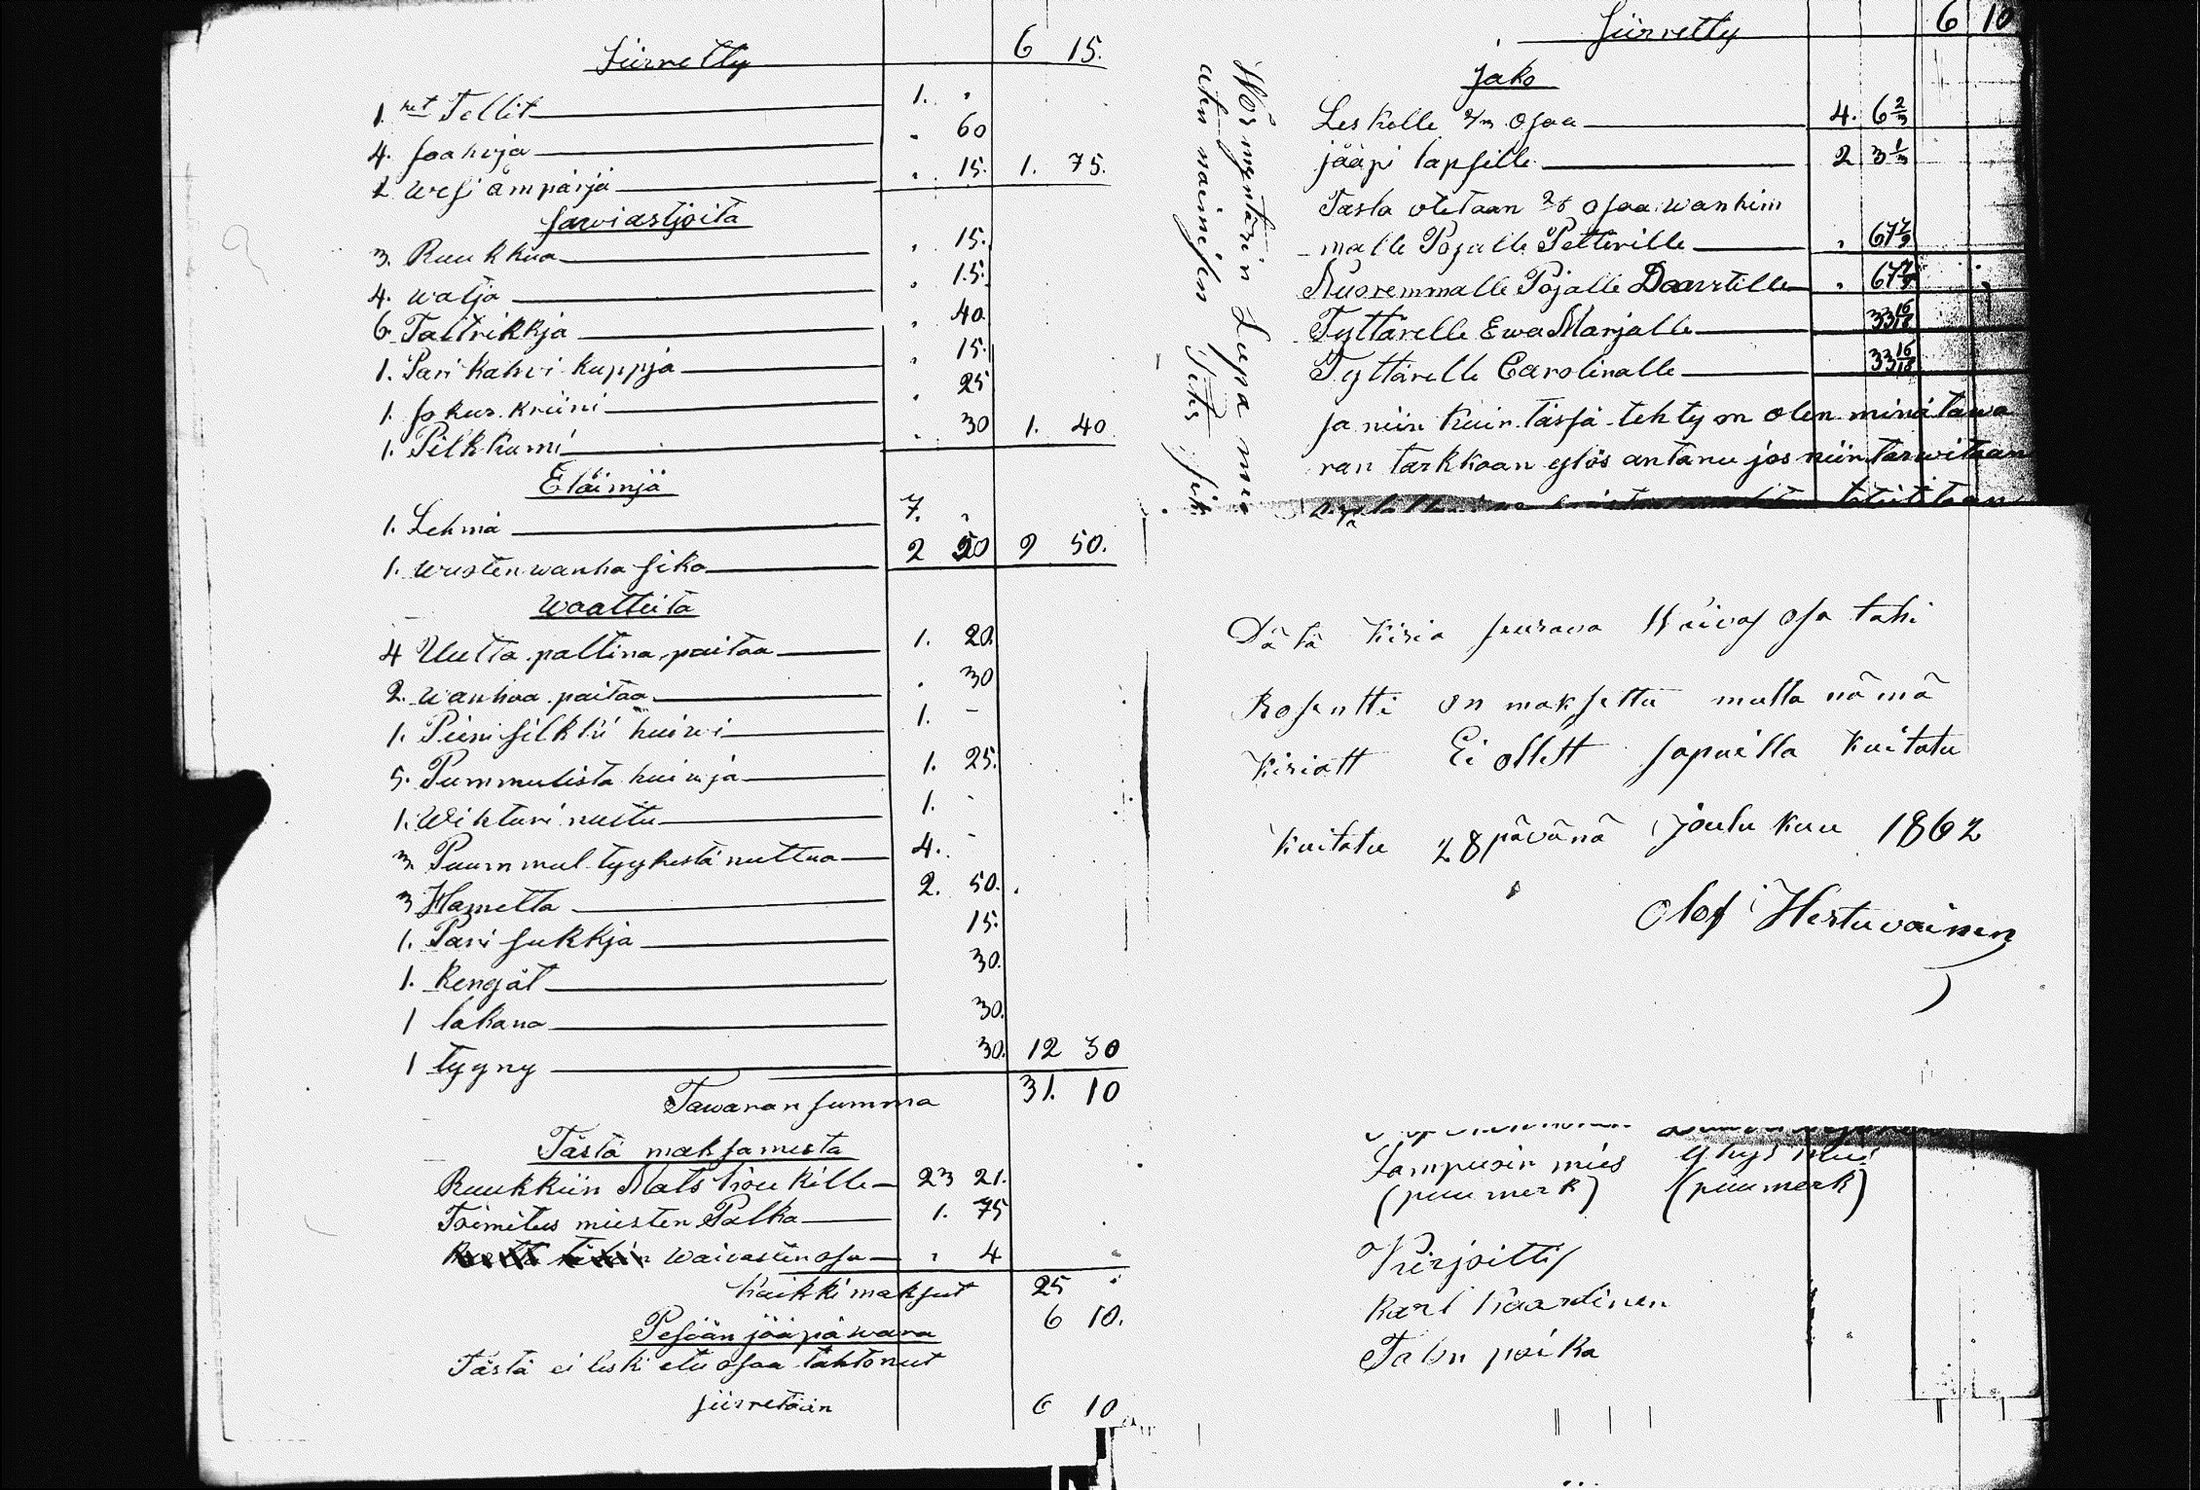 Siirretty 6 15.
1. ret Tellit 1. "
4. saavija " 60
2 wesi ämpärjä " 15. 1. 75.
Sawiastjoita
3. Ruukkua " 15.
4. watja " 15.
6. Taltrikkja " 40
1. Pari kahvi kuppja " 15.
1. sokur. kriini " 25
1. Pilkkumi " 30 1. 40
Eläimjä
1. Lehmä 7. "
1. wuoten wanha sika 2 50 9 50.
Waatteita
4 Uutta palttina paitaa 1. 20.
2. wanhaa paitaa " 30
1. Pieni silkki huiwi 1. -
5. Pummulista huiwja 1. 25.
1. Wihturi nuttu 1. -
3. Puummul tyykistä nuttua 4. -
3 Hametta 2. 50.
1. Pari sukkja 15.
1. Kengät 30.
1 lakana 30.
1 tyyny 30. 12 30
Tawaran summa 31. 10
Tästä maksamista
Ruukkiin Mats Houkille 23 21.
Toimitus miesten Palka 1. 75
waivastenosa " 4
Kaikki maksut 25 "
Pesään jääpä wara 6 10.
Tästä ei leski etu osaa tahtonut
siirretään 6 10
Siirretty 6 10
Jako
Leskelle 2/3 osaa 4. 6 2/3
jääpi lapsille 2 3 1/3
Tästa otetaan osaa wanhim
malle Pojalle Petterille " 67 7/9
Nuoremmalle Pojalle Daavitille " 67 7/9
Tyttärelle Ewa Marjalle 33 16/18
Tyttärelle Carolinalle 33 16/18
Ja niin kuin tässä tehty on olen minä tawa
ran tarkkaan ylös antanu jos niin tarwitaan
Tätä kiria seurava Waivas osa tahi
Rosentti on maksettu mutta nämä
kiriatt Ei ollett sapuilla kuitatu
kuitatu 28 pävänä joulu kuu 1862
Olof Hertuvainen
Lampuoin mies
(puumerk) (puumerk)
Kirjoittis
Karl Kaartinen
Talon poika